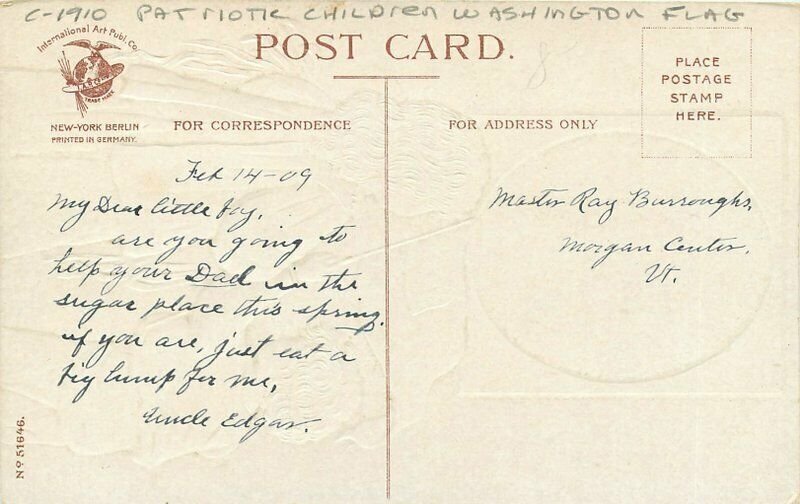 C-1910 PATRIOTIC CHILDREN WASHINGTON FLAG
International Art Publ. Co.
TRADE MARK
NEW-YORK BERLIN
PRINTED IN GERMANY.
POST CARD.
PLACE
POSTAGE
STAMP
HERE.
FOR CORRESPONDENCE
FOR ADDRESS ONLY
Feb 14-09
My Dear little boy,
are you going to
help your Dad in the
sugar place this spring.
if you are, just eat a
big lump for me,
Uncle Edgar.
Master Ray Burroughs,
Morgan Center,
Vt.
No 51646.